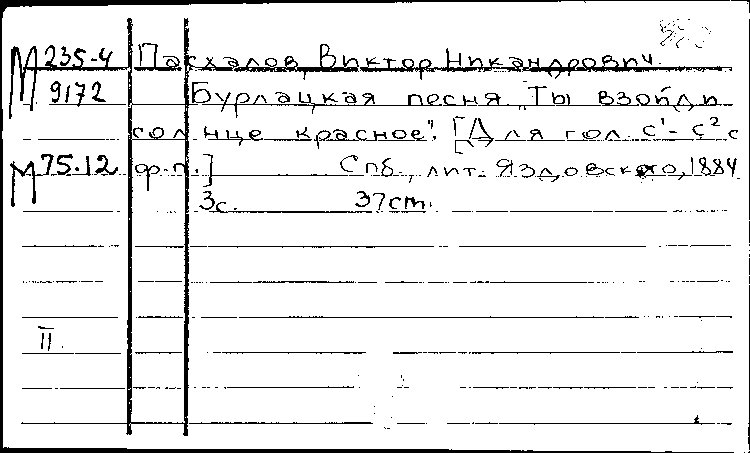 М 235-4 Пасхалов, Виктор Никандрович.
9172 Бурлацкая песня „Ты взойди
солнце красное". [Для гол. c¹- c² с
М 75.12 ф.п.] Спб., лит. Яздовского, 1884
3с. 37cm.
II.